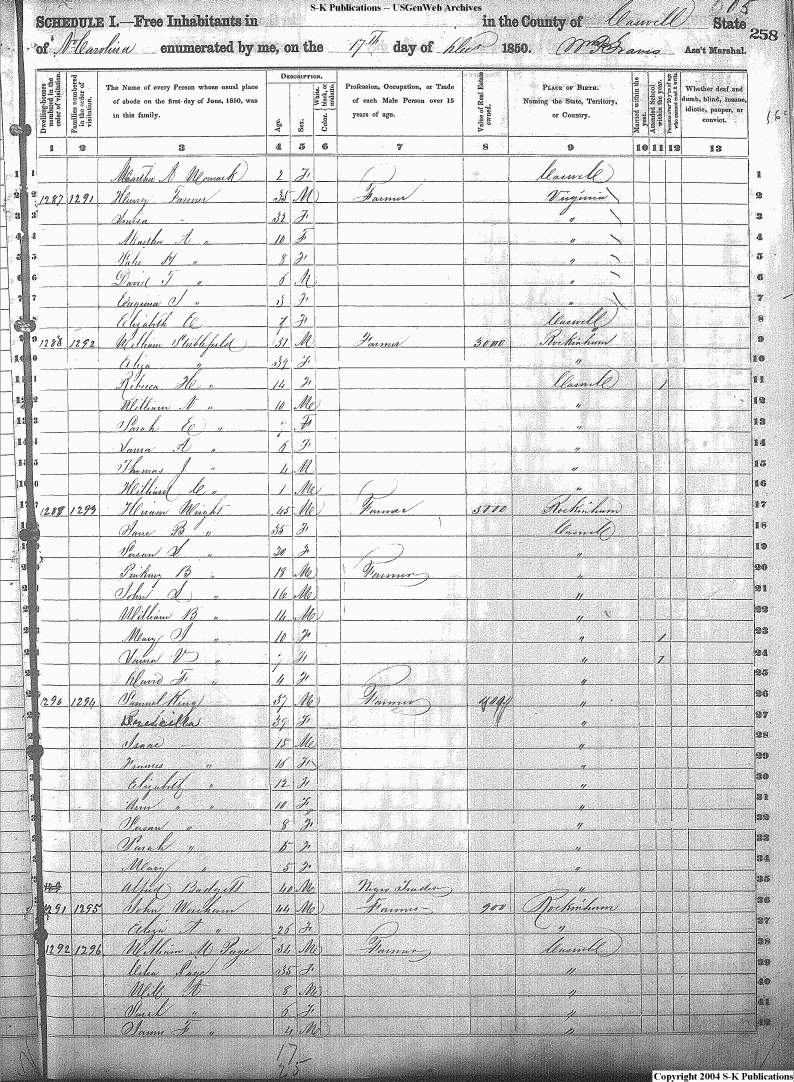 S-K Publications -- USGenWeb Archives
SCHEDULE I.—Free Inhabitants in in the County of Caswell State 258
of N. Carolina enumerated by me, on the 17th day of 1850. Ass't Marshal.
Dwelling-houses numbered in the order of visitation.
Families numbered in the order of visitation.
The Name of every Person whose usual place of abode on the first day of June, 1850, was in this family.
DESCRIPTION.
Age.
Sex.
Color, White, black, or mulatto.
Profession, Occupation, or Trade of each Male Person over 15 years of age.
Value of Real Estate owned.
PLACE OF BIRTH.
Naming the State, Territory, or Country.
Married within the year.
Attended School within the year.
Persons over 20 y'rs of age who cannot read & write.
Whether deaf and dumb, blind, insane, idiotic, pauper, or convict.
1 2 3 4 5 6 7 8 9 10 11 12 13
1 Martha A Womack 2 F Caswell 1
2 1287 1291 Henry Farmer 35 M Farmer Virginia 2
3 32 F " 3
4 Martha A " 10 F " 4
5 " 8 F " 5
6 David T " 6 M " 6
7 Eugenia " 3 F " 7
8 Elizabeth E 7 F Caswell 8
9 1288 1292 William Stubblefield 51 M Farmer 3000 Rockinham 9
10 Eliza " 39 F " 10
11 Rebecca H " 14 F Caswell 1 11
12 William N " 10 M " 12
13 Sarah E " F " 13
14 Laura A " 6 F " 14
15 Thomas J " 4 M " 15
16 Hilliard C " 1 M " 16
17 1293 Hiram Wright 45 M Farmer 5000 Rockinham 17
18 Jane B " 35 F Caswell 18
19 Susan S " 20 F " 19
20 Pinkney B " 18 M Farmer " 20
21 John S " 16 M " 21
22 William B " 14 M " 22
23 Mary " 10 F " 1 23
24 Laura V " F " 1 24
25 David F " 4 F " 25
26 1290 1294 Samuel King 37 M Farmer " 26
27 39 F " 27
28 Isaac " 15 M " 28
29 Frances " 16 F " 29
30 Elizabeth " 12 F " 30
31 Ann " " 10 F " 31
32 Susan " 8 F " 32
33 Sarah " F " 33
34 Mary " 5 F " 34
35 Alfred Badgett 40 M Negro Trader " 35
36 1291 1295 John Worsham 44 M Farmer 900 Rockinham 36
37 Eliza A " 26 F " 37
38 1292 1296 William M Page 34 M Farmer Caswell 38
39 Page 35 F " 39
40 8 M " 40
41 Sarah " 6 F " 41
42 James F " 4 M " 42
17
25
Copyright 2004 S-K Publications